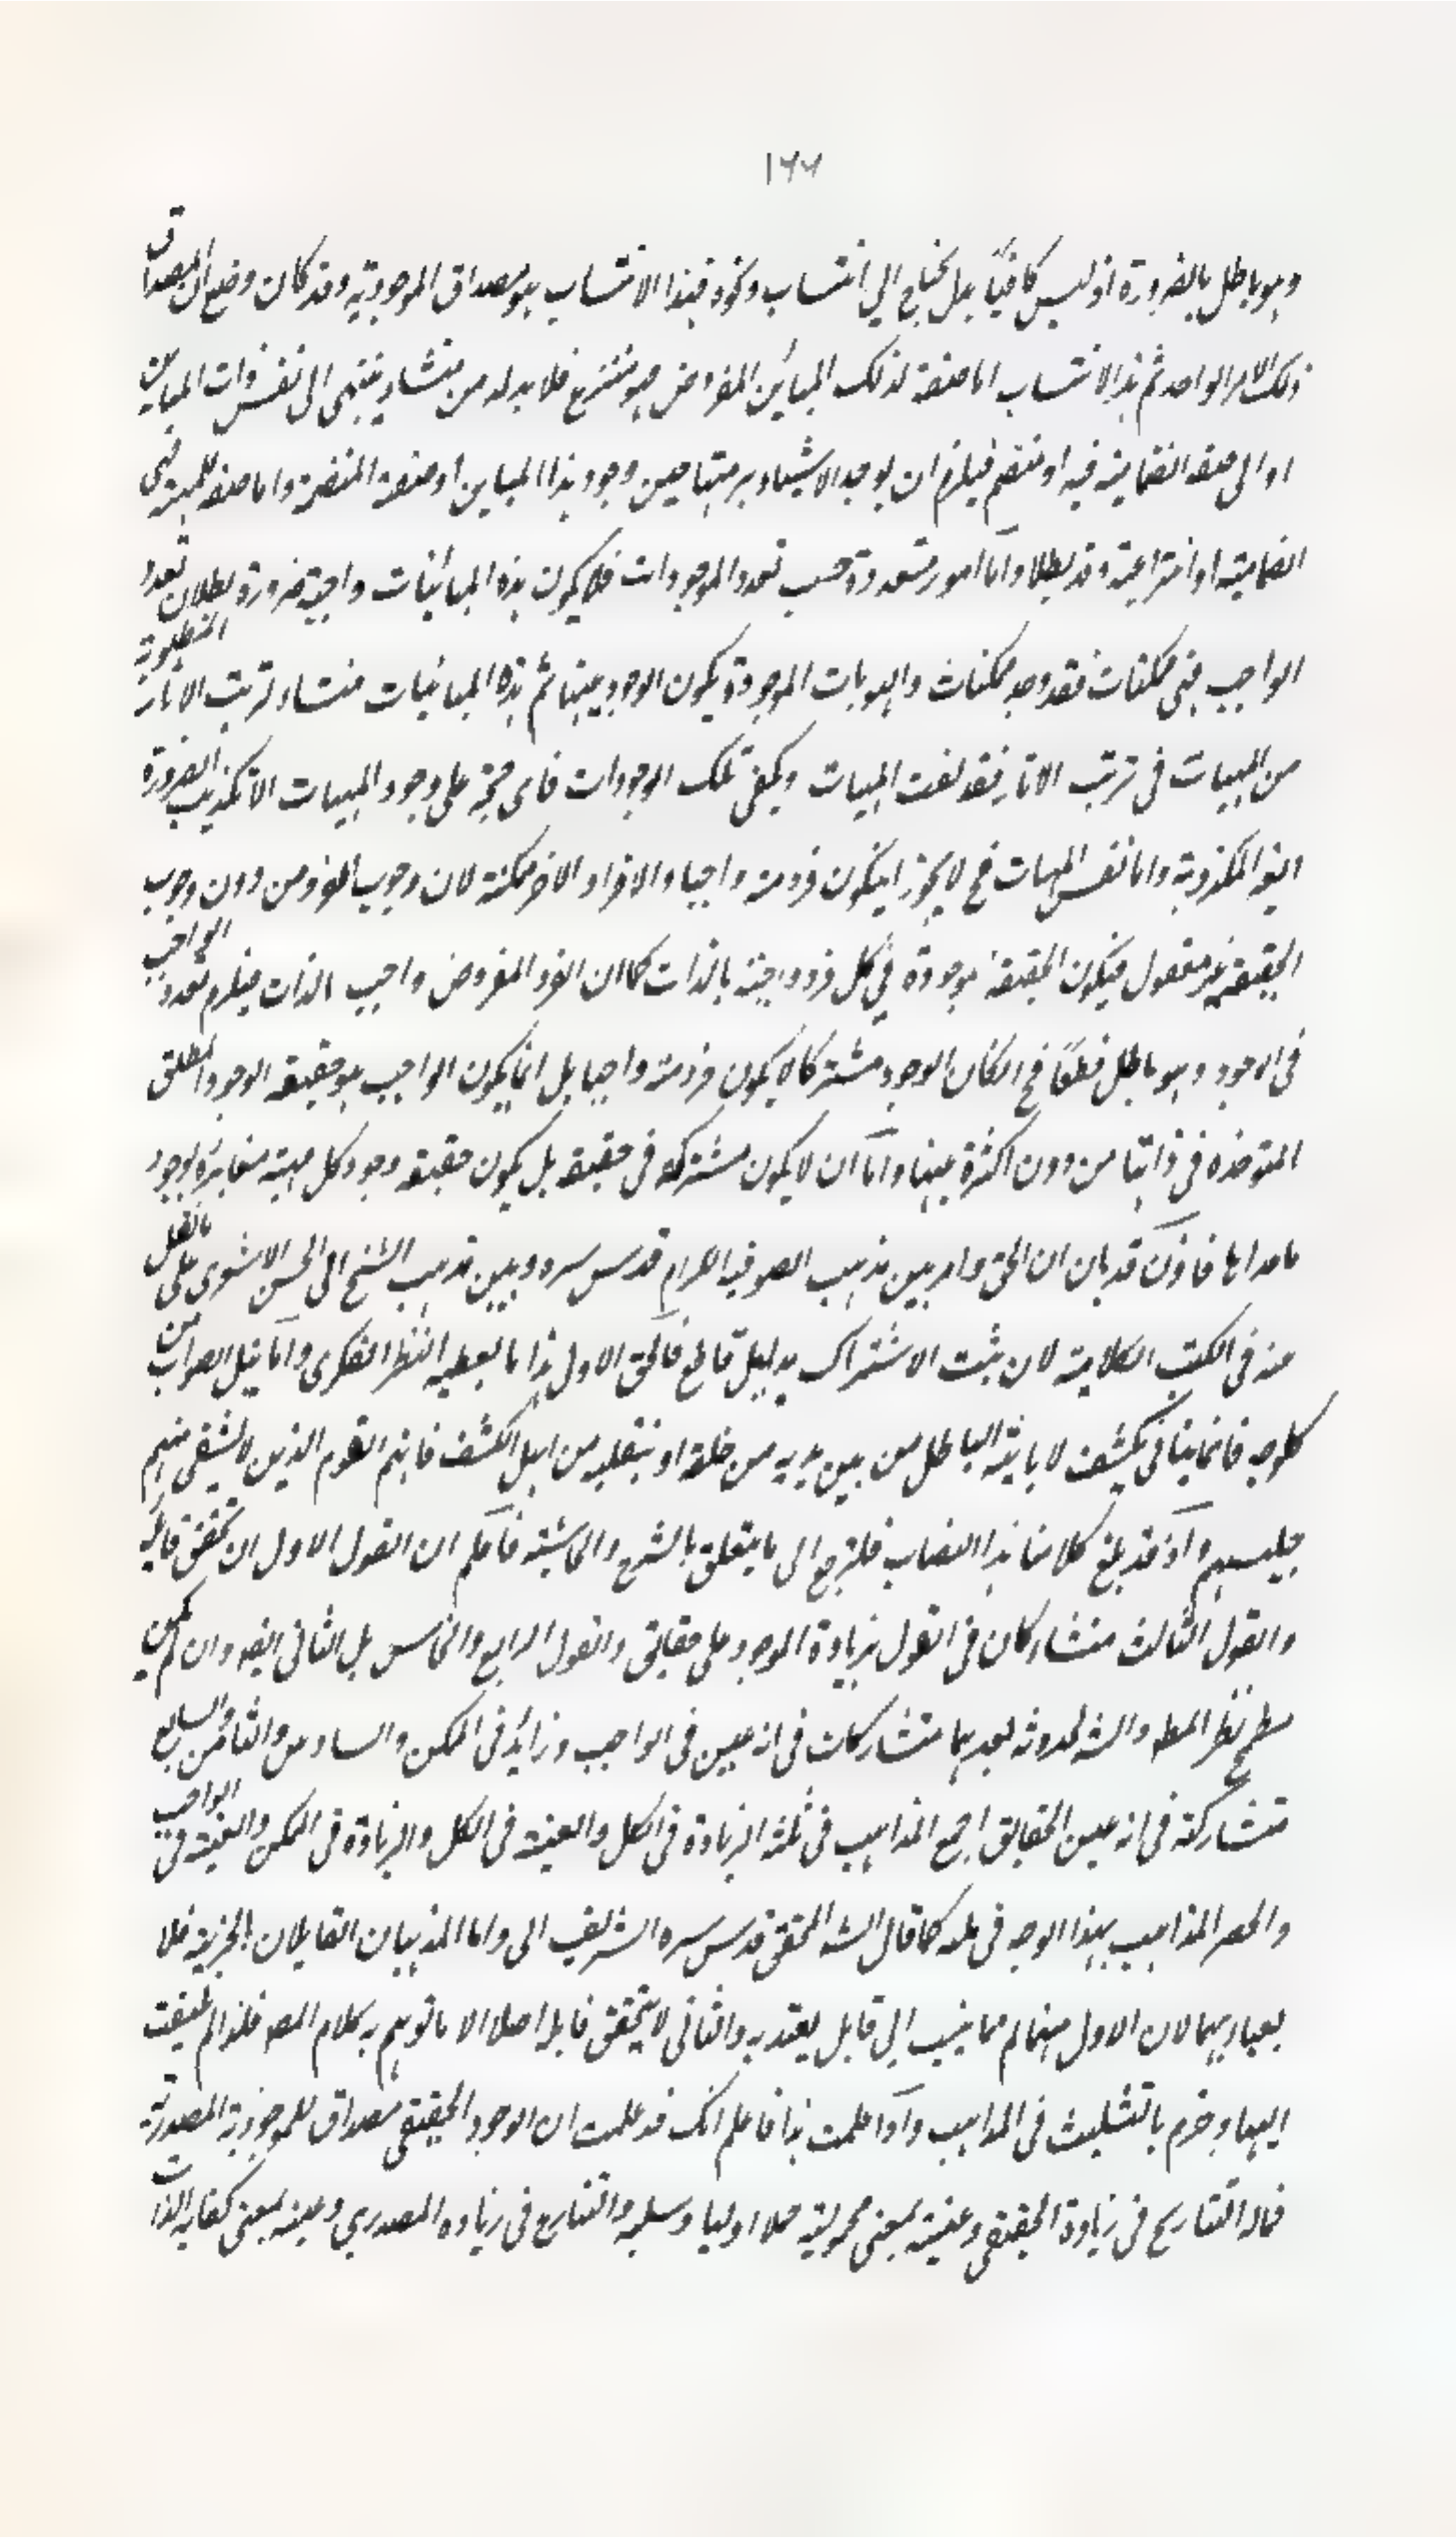 ١٦٦
وهو باطل بالضرورة اذ ليس كافيًا بل يحتاج الى انتساب ونحوه فهذا الانتساب هو مصداق الموجودية وقد كان وضع ان المصداق
ذلك الامر الواحد ثم هذا الانتساب اما صفة لذلك المباين المفروض فهو منتزع فلا بد له من منشاء ينتهى الى نفس ذات المباين
او الى صفة انضمامية فيه او منضم فيلزم ان يوجد الاشياء برمتها حين وجود هذا المباين او صفة المنضمة واما صفة للمهية فهى
انضمامية او انتزاعية وقد بطلا واما امور متعددة حسب تعدد الموجودات فلا يكون هذه المباينات واجبة ضرورة بطلان تعدد
الواجب فهى ممكنات فقد وجد ممكنات والهويات الموجودة يكون الوجود عينها ثم هذه المباينات منشاء ترتب الاثار المطلوبة
من المهيات فى ترتب الاثار فقد لغت المهيات ويكفى تلك الوجودات فاى حجة على وجود المهيات الا تكذيب الضرورة
الغير المكذوبة واما نفس المهيات فح لا يجوز ان يكون فرد منه واجبا والافراد الاخر ممكنة لان وجوب الفرد من دون وجوب
الحقيقة غير معقول فيكون الحقيقة موجودة فى كل فرد واجبة بالذات كما ان الفرد المفروض واجب الذات فيلزم تعدد الواجب
فى الوجود وهو باطل قطعًا فح ان كان الوجود مشتركا لا يكون فرد منه واجبا بل انما يكون الواجب هو حقيقة الوجود المطلق
المتوحدة فى ذاتها من دون اكثرة عينها واما ان لا يكون مشتركه فى حقيقة بل يكون حقيقة وجود كل مهية مغايرة لوجود
ما عداها فاذن قد بان ان الحق دار بين مذهب الصوفية الكرام قدس سره وبين مذهب الشيخ ابى الحسن الاشعرى على ما نقل
عنه فى الكتب الكلامية لان ثبت الاشتراك بدليل قاطع فالحق الاول هذا ما يعطيه النظر الفكرى واما نيل الصواب من
كل وجه فانما يتاتى بكشف لا ياتيه الباطل من بين يديه من خلفه او بتقليد من اهل الكشف فانهم القوم الذين لا يشقى منهم
جليسهم واذ قد بلغ كلامنا هذا النصاب فلنرجع الى ما يتعلق بالشرح والحاشية فاعلم ان القول الاول ان تحقق قايله
والقول الثالث متشاركان فى القول بزيادة الوجود على حقايق والقول الرابع والخامس بل الثانى ايضه وان لم يكن
مطمح نظر المط والشه لحدوثه بعدهما متشاركات فى انه عين فى الواجب وزايد فى الممكن والسادس والثامن والسابع
متشاركة فى انه عين الحقايق اجمع المذاهب فى ثلثة الزيادة فى الكل والعينة فى الكل والزيادة فى الممكن والعينية فى الواجب
والحصر المذاهب بهذا الوجه فى ثلثة كما قال الشه المحقق قدس سره الشريف الى واما المذهبان القايلان بالجزئية فلا
يعبأ بهما لان الاول منهما لم مما ينسب الى قايل يعتد به والثانى لا يتحقق قايله اصلا الا ما توهم به كلام المص فلذا لم يلتفت
اليها وجزم بالتثليث فى المذاهب واذا علمت هذا فاعلم انك قد علمت ان الوجود الحقيقى مصداق للموجودية المصدرية
فمال التنازع فى زيادة الحقيقى وعينية بمعنى محمولية حملا اوليا وسلبه والتنازع فى زياده المصدري وعينه بمعنى كفاية الذات